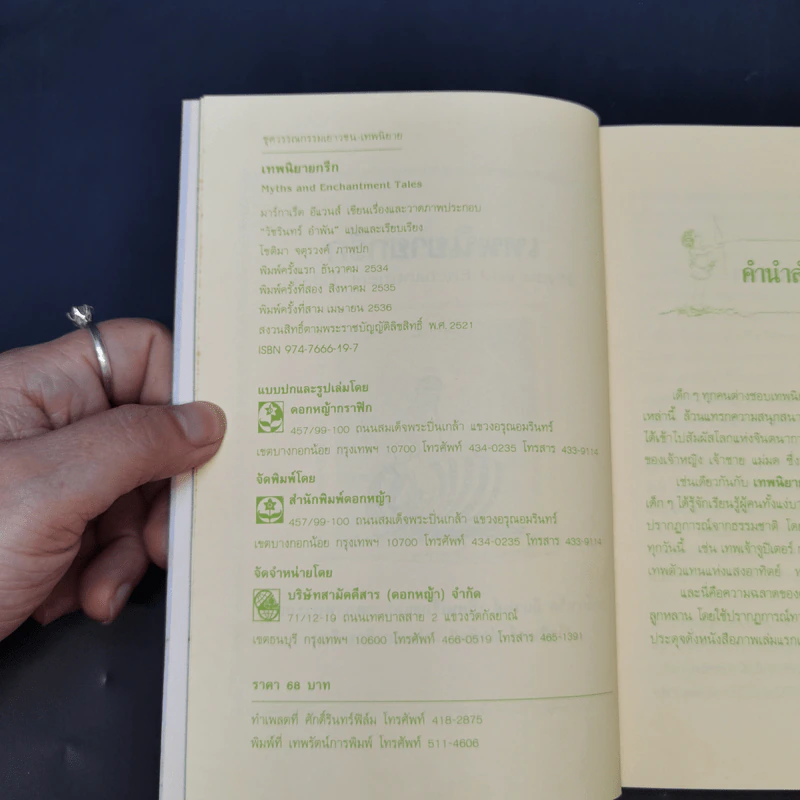 ชุดวรรณกรรมเยาวชน-เทพนิยาย
เทพนิยายกรีก
Myths and Enchantment Tales
มาร์กาเร็ต อีแวนส์ เขียนเรื่องและวาดภาพประกอบ
"วัชรินทร์ อำพัน" แปลและเรียบเรียง
โชติมา จตุรวงค์ ภาพปก
พิมพ์ครั้งแรก ธันวาคม 2534
พิมพ์ครั้งที่สอง สิงหาคม 2535
พิมพ์ครั้งที่สาม เมษายน 2536
สงวนสิทธิ์ตามพระราชบัญญัติลิขสิทธิ์ พ.ศ. 2521
ISBN 974-7666-19-7
แบบปกและรูปเล่มโดย
ดอกหญ้ากราฟิก
457/99-100 ถนนสมเด็จพระปิ่นเกล้า แขวงอรุณอมรินทร์
เขตบางกอกน้อย กรุงเทพฯ 10700 โทรศัพท์ 434-0235 โทรสาร 433-9114
จัดพิมพ์โดย
สำนักพิมพ์ดอกหญ้า
457/99-100 ถนนสมเด็จพระปิ่นเกล้า แขวงอรุณอมรินทร์
เขตบางกอกน้อย กรุงเทพฯ 10700 โทรศัพท์ 434-0235 โทรสาร 433-9114
จัดจำหน่ายโดย
บริษัทสามัคคีสาร (ดอกหญ้า) จำกัด
71/12-19 ถนนเทศบาลสาย 2 แขวงวัดกัลยาณ์
เขตธนบุรี กรุงเทพฯ 10600 โทรศัพท์ 466-0519 โทรสาร 465-1391
ราคา 68 บาท
ทำเพลตที่ ศักดิ์รินทร์ฟิล์ม โทรศัพท์ 418-2875
พิมพ์ที่ เทพรัตน์การพิมพ์ โทรศัพท์ 511-4606
คำนำ
เด็ก ๆ ทุกคนต่างชอบ
เหล่านี้ ล้วนแทรกความ
ได้เข้าไปสัมผัสโลกแห่ง
ของเจ้าหญิง เจ้าชาย แม่มด
เช่นเดียวกันกับ
เด็ก ๆ ได้รู้จักเรียนรู้ผู้คน
ปรากฏการณ์จากธรรมชาติ
ทุกวันนี้ เช่น เทพเจ้าจูปิเตอร์
เทพตัวแทนแห่งแสงอาทิตย์
และนี่คือความฉลาดของ
ลูกหลาน โดยใช้ปรากฏการณ์
ประตุจดังหนังสือภาพเล่ม